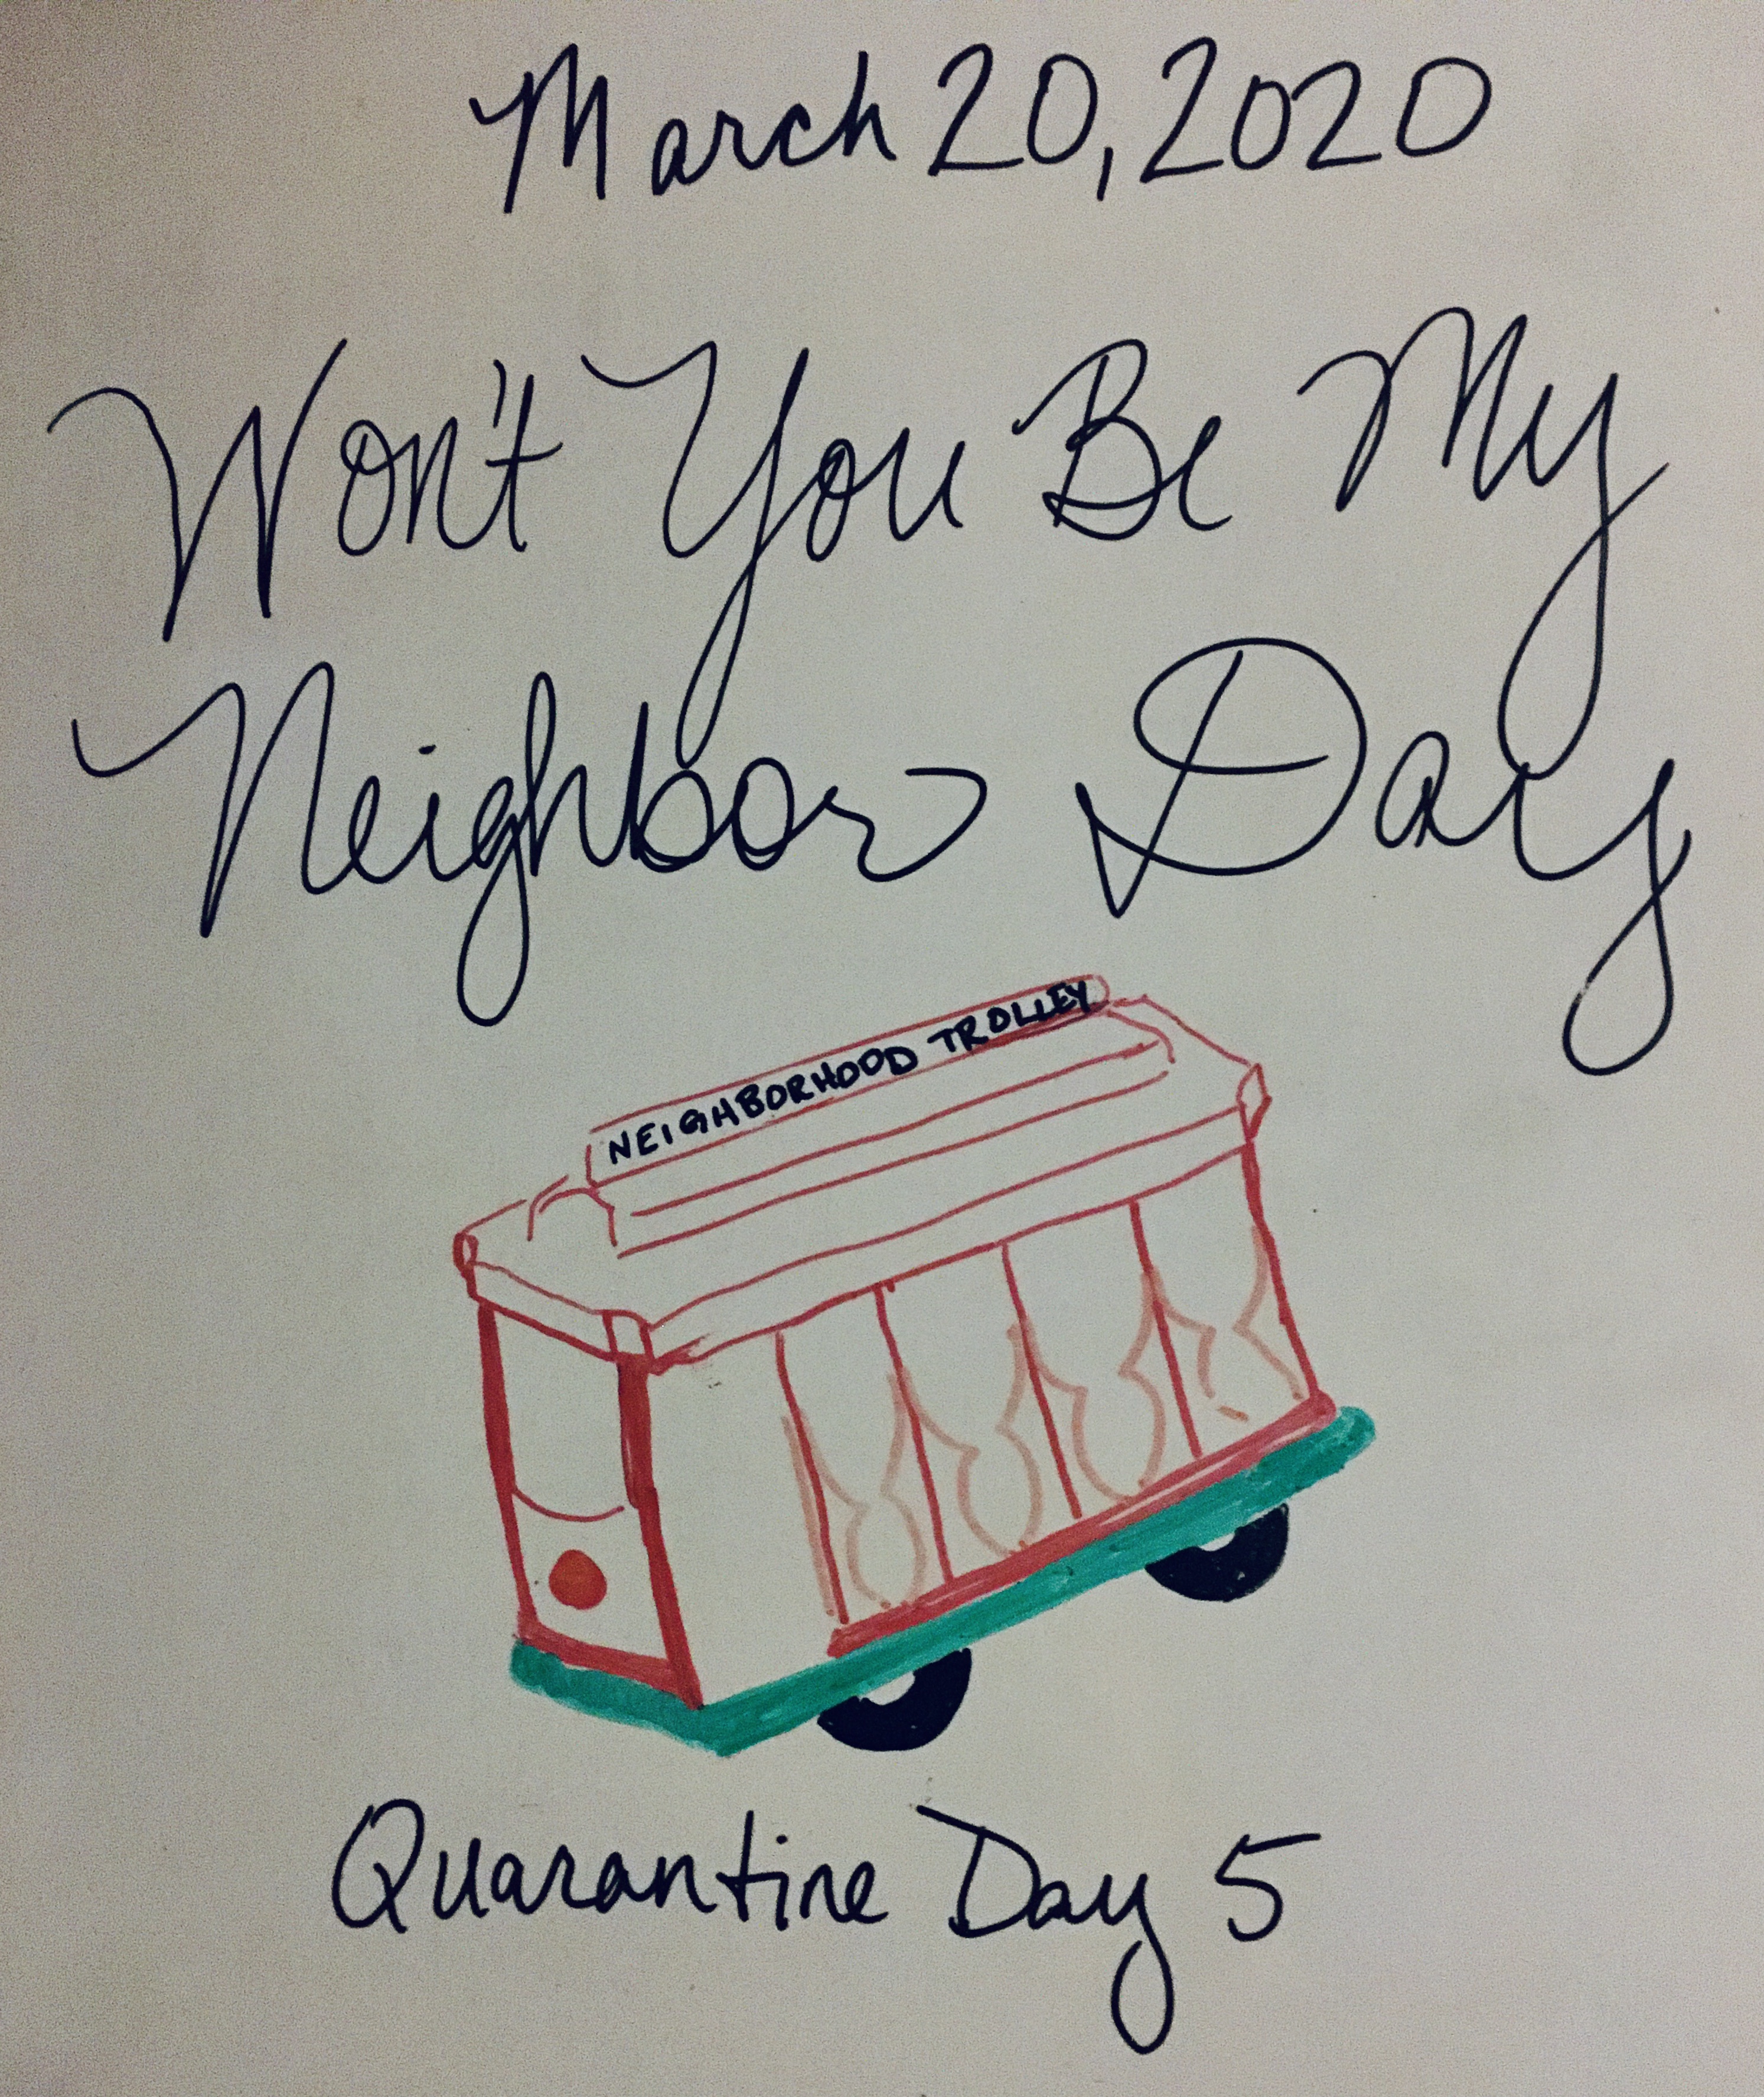 March 20, 2020
Won't You Be My
Neighbor Day
NEIGHBORHOOD TROLLEY
Quarantine Day 5